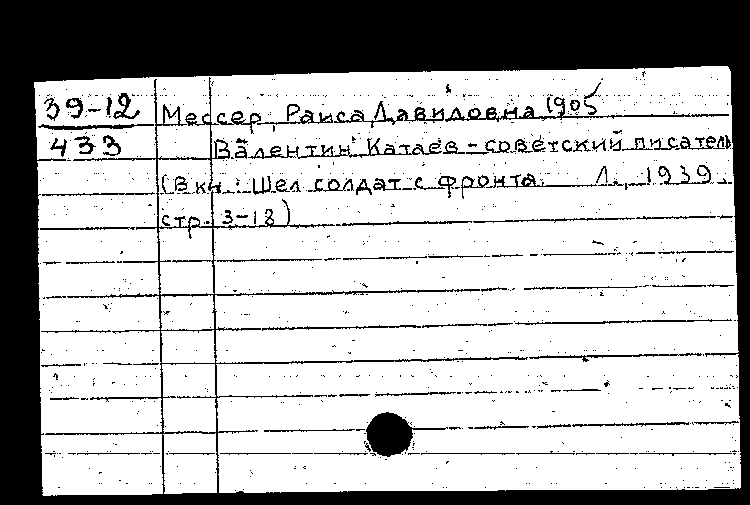 39-12
433
Мессер, Раиса Давидовна 1905
Валентин Катаев - советский писатель
(В кн.: Шел солдат с фронта. Л., 1939.
стр. 3-18)